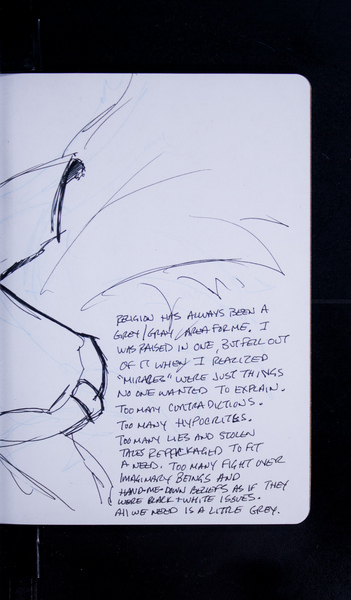 RELIGION HAS ALWAYS BEEN A
GREY/GRAY AREA FOR ME. I
WAS RAISED IN ONE, BUT FELL OUT
OF IT WHEN I REALIZED
"MIRACLES" WERE JUST THINGS
NO ONE WANTED TO EXPLAIN.
TOO MANY CONTRADICTIONS.
TOO MANY HYPOCRITES.
TOO MANY LIES AND STOLEN
TALES REPACKAGED TO FIT
A NEED. TOO MANY FIGHT OVER
IMAGINARY BEINGS AND
HAND-ME-DOWN BELIEFS AS IF THEY
WERE BLACK + WHITE ISSUES.
All WE NEED IS A LITTLE GREY.